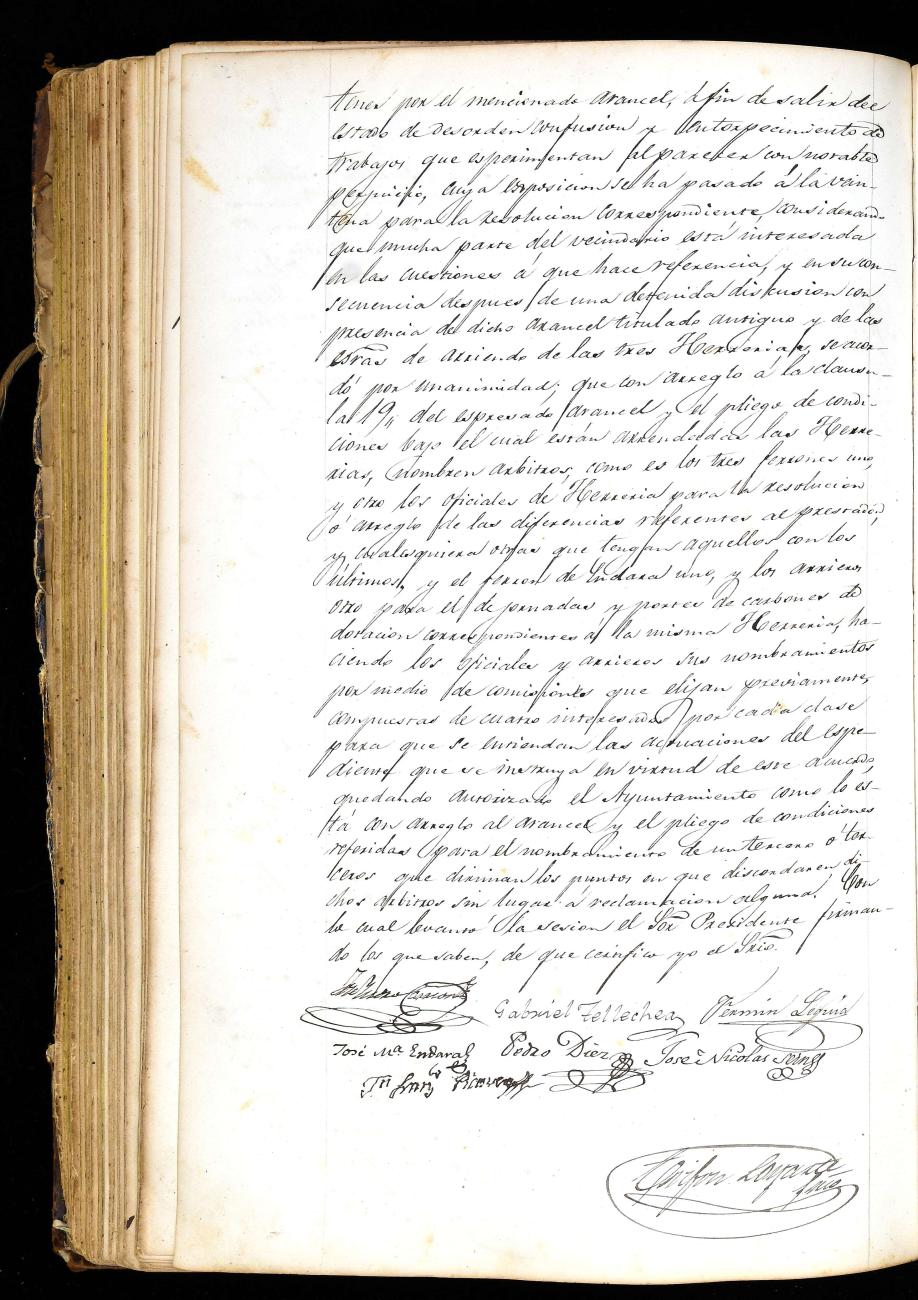 tener por el mencionado arancel, á fin de salir del
estado de desorden confusion y entorpecimiento de
trabajos que esperimentan al parecer con notable
perjuicio, cuya esposicion se ha pasado á la vein-
tena para la resolucion correspondiente, considerando
que mucha parte del vecindario está interesada
en las cuestiones á que hace referencia, y en su con-
secuencia despues de una detenida discusion con
presencia de dicho arancel titulado antiguo y de las
esras de arriendo de las tres Herrerias, se acor-
dó por unanimidad; que con arreglo á la clausu-
la 19,, del espresado arancel y el pliego de condi-
ciones bajo el cual están arrendadas las Herre-
rias, nombren arbitros, como es los tres ferrones uno,
y otro los oficiales de Herreria para la resolucion
ó arreglo de las diferencias referentes al prestado,
y cualesquiera otras que tengan aquellos con los
últimos, y el ferron de Endara uno, y los arrieros
otro para el de jornadas y portes de carbones de
dotacion correspondientes á la misma Herreria, ha-
ciendo los oficiales y arrieros sus nombramientos
por medio de comisiones que elijan previamente,
compuestas de cuatro interesados por cada clase
para que se entiendan las actuaciones del espe-
diente que se instruya en virtud de este acuerdo,
quedando autorizado el Ayuntamiento como lo es-
tá con arreglo al arancel y el pliego de condiciones
referidas para el nombramiento de un tercero ó ter-
ceros que diriman los puntos en que discordaren di-
chos arbitros sin lugar á reclamacion alguna. Con
lo cual levantó la sesion el Sor Presidente firman-
do los que saben, de que certifico yo el Srio.
Gabriel Tellechea Fermin Leguia
José Ma. Endara Pedro Diez José Nicolas